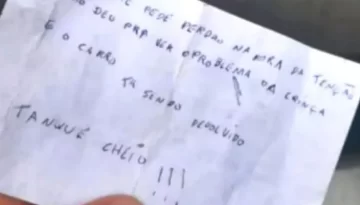 PEDE PERDAO NA ORA DA TENÇÃO
DEU PRA VER O PROBLEMA DA CRINÇA
E O CARRO TA SENDO DEVOLVIDO
TANQUE CHEIO !!!